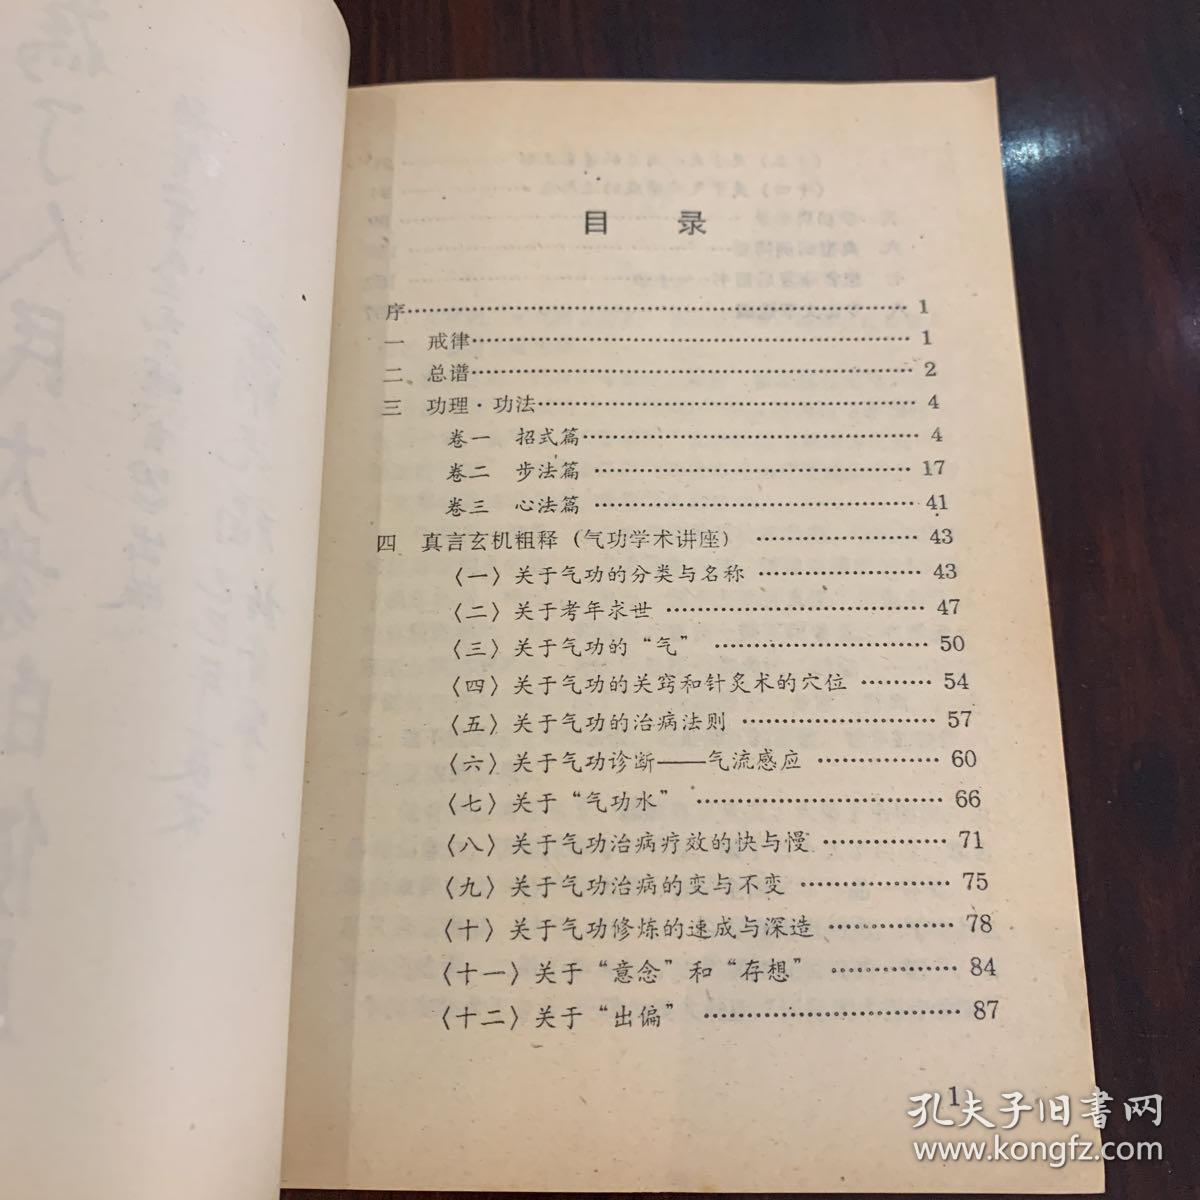 目 录
序……1
一 戒律……1
二 总谱……2
三 功理·功法……4
卷一 招式篇……4
卷二 步法篇……17
卷三 心法篇……41
四 真言玄机粗释（气功学术讲座）……43
〈一〉关于气功的分类与名称……43
〈二〉关于考年求世……47
〈三〉关于气功的“气”……50
〈四〉关于气功的关窍和针灸术的穴位……54
〈五〉关于气功的治病法则……57
〈六〉关于气功诊断——气流感应……60
〈七〉关于“气功水”……66
〈八〉关于气功治病疗效的快与慢……71
〈九〉关于气功治病的变与不变……75
〈十〉关于气功修炼的速成与深造……78
〈十一〉关于“意念”和“存想”……84
〈十二〉关于“出偏”……87
1
孔夫子旧书网
www.kongfz.com